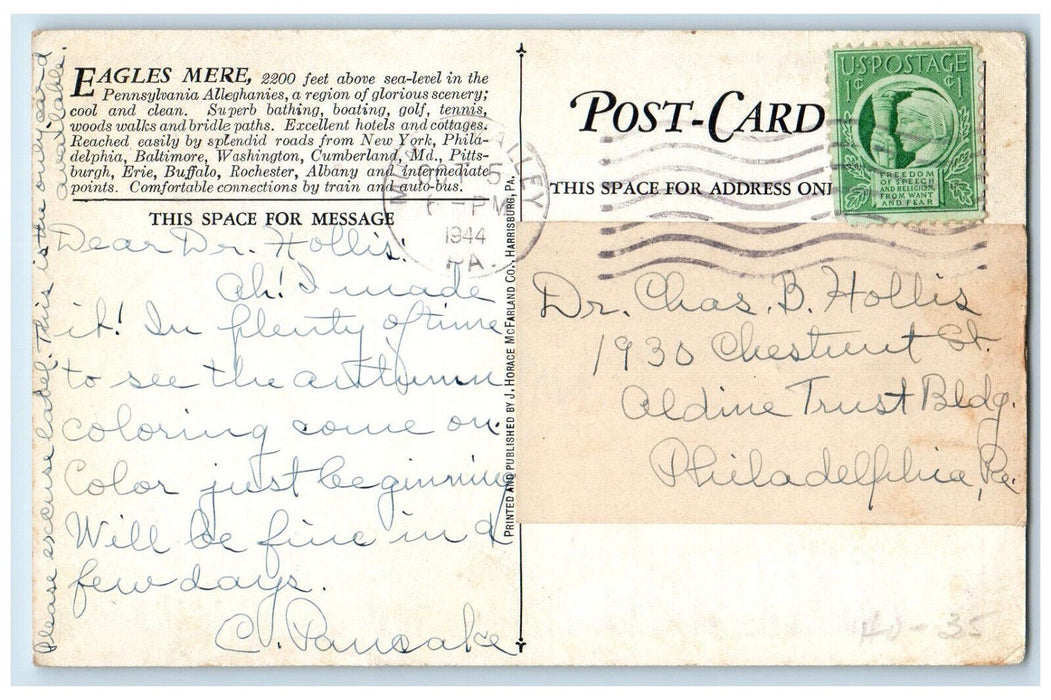 EAGLES MERE, 2200 feet above sea-level in the
Pennsylvania Alleghanies, a region of glorious scenery;
cool and clean. Superb bathing, boating, golf, tennis,
woods walks and bridle paths. Excellent hotels and cottages.
Reached easily by splendid roads from New York, Phila-
delphia, Baltimore, Washington, Cumberland, Md., Pitts-
burgh, Erie, Buffalo, Rochester, Albany and intermediate
points. Comfortable connections by train and auto-bus.
THIS SPACE FOR MESSAGE
Dear Dr. Hollis:
Ah! I made
it! In plenty of time
to see the autumn
coloring come on.
Color just beginning
Will be fine in a
few days.
C. Pancake
Please excuse label. This is the only card
available.
PRINTED AND PUBLISHED BY J. HORACE MCFARLAND CO., HARRISBURG, PA.
VALLEY
5
PM
1944
PA.
POST-CARD
THIS SPACE FOR ADDRESS ONL
U.S. POSTAGE
1¢ 1¢
FREEDOM
OF SPEECH
AND RELIGION,
FROM WANT
AND FEAR
Dr. Chas. B. Hollis
1930 Chestnut St.
Aldine Trust Bldg.
Philadelphia, Pa.
- 35